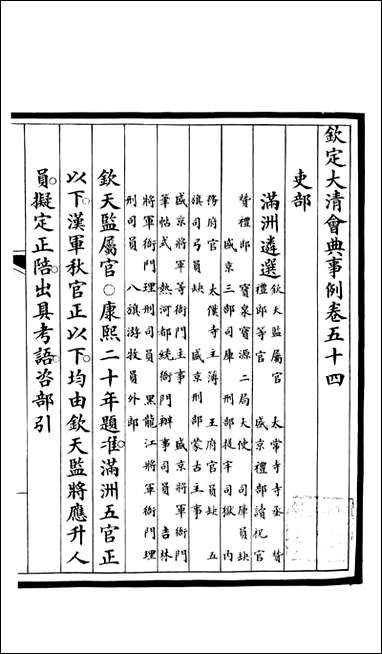 欽定大清會典事例卷五十四
吏部
滿洲遴選
欽天監屬官 太常寺寺丞 贊
禮郎等官 盛京禮部讀祝官
贊禮郎 寶泉寶源二局大使 司庫員缺
盛京三部司庫 刑部提牢司獄 內
務府官 太僕寺主簿 王府官員缺 五
旗司弓員缺 盛京刑部蒙古主事
盛京將軍等衙門主事 盛京將軍衙門
筆帖式 熱河都統衙門辦事司員 吉林
將軍衙門理刑司員 黑龍江將軍衙門理
刑司員 八旗游牧員外郎
欽天監屬官○康熙二十年題准滿洲五官正
以下漢軍秋官正以下均由欽天監將應升人
員擬定正陪出具考語咨部引